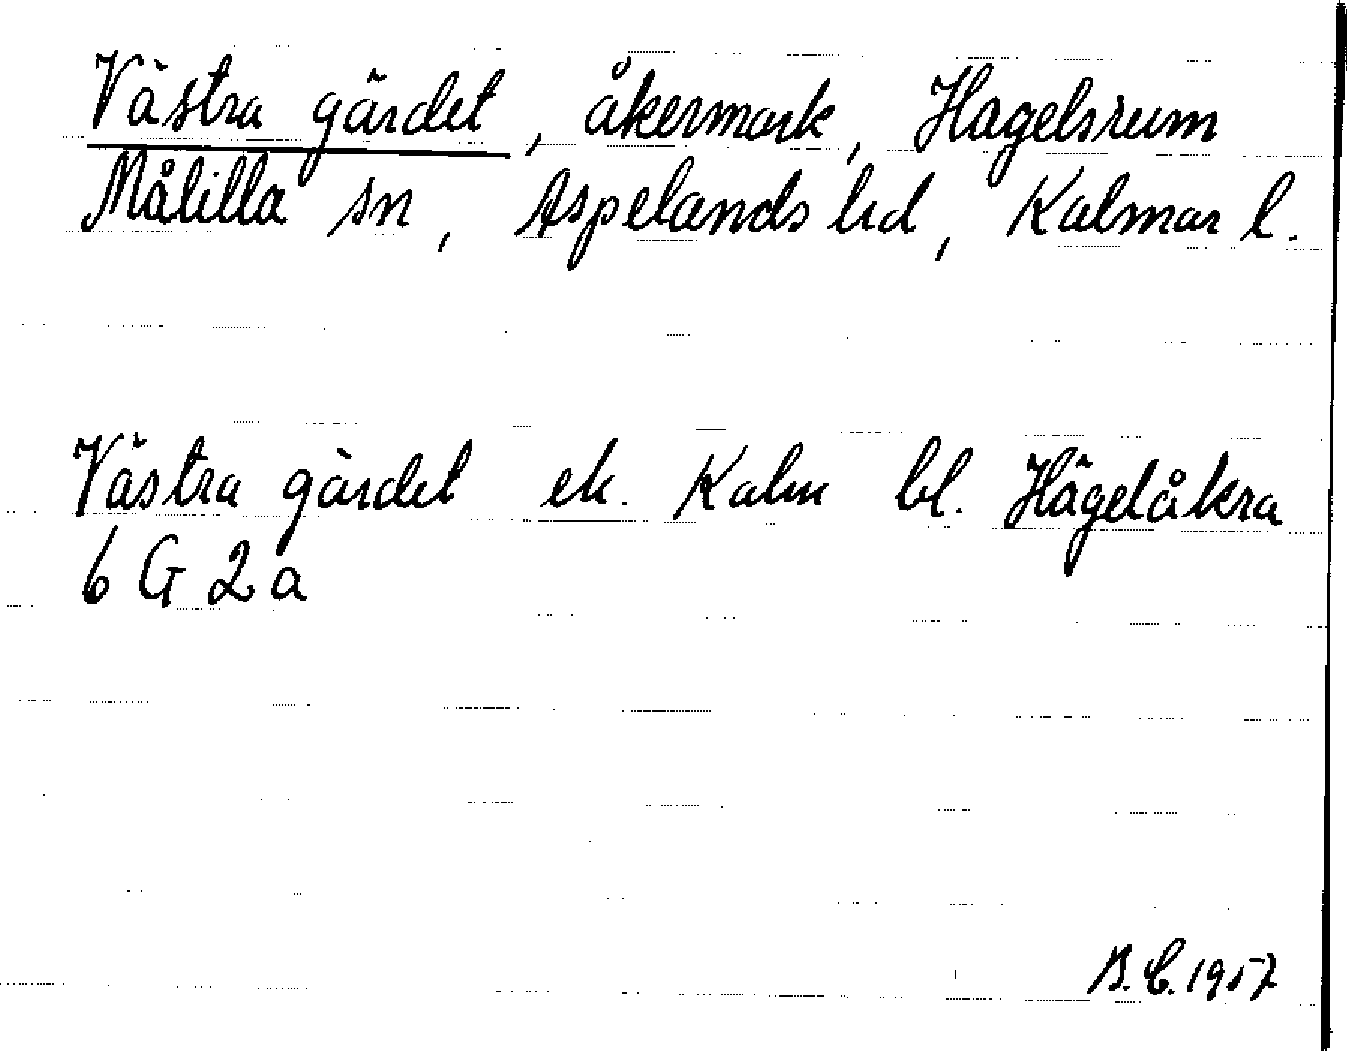 Västra gärdet, åkermark, Hagelsrum
Målilla sn, Aspelands hd, Kalmar l.
Västra gärdet ek. Kalm bl. Hägelåkra
6 G 2 a
B.C. 1957